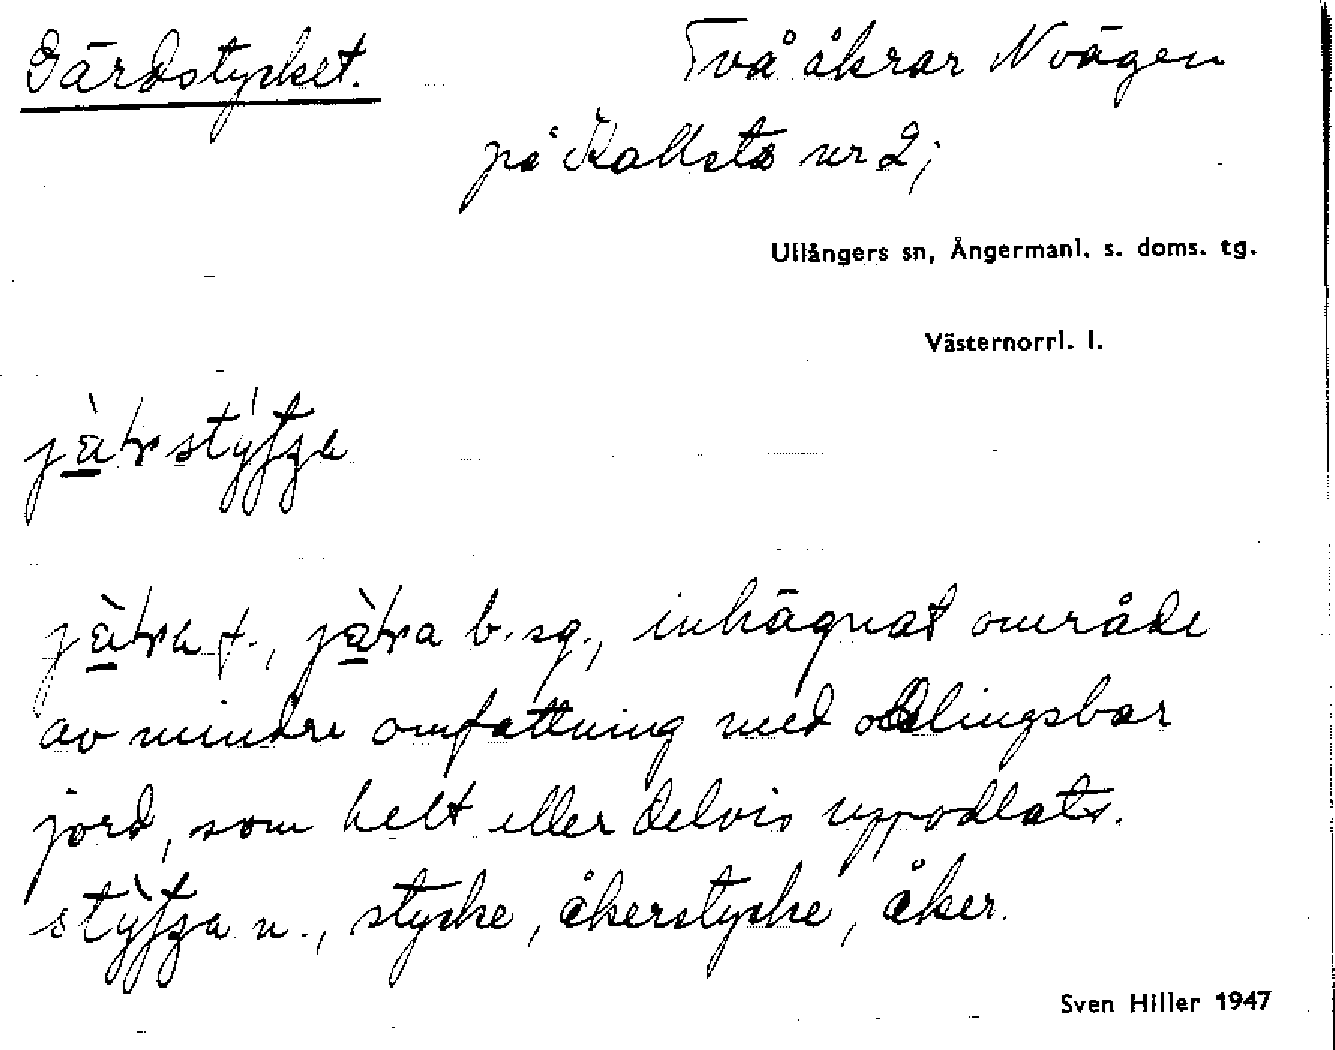 Gärdstycket. Två åkrar N vägen
på Kallsta nr 2;
Ullångers sn, Ångermanl. s. doms. tg.
Västernorrl. l.
f., b. sg., inhägnat område
av mindre omfattning med odlingsbar
jord, som helt eller delvis uppodlats.
n., stycke, åkerstycke, åker.
Sven Hiller 1947